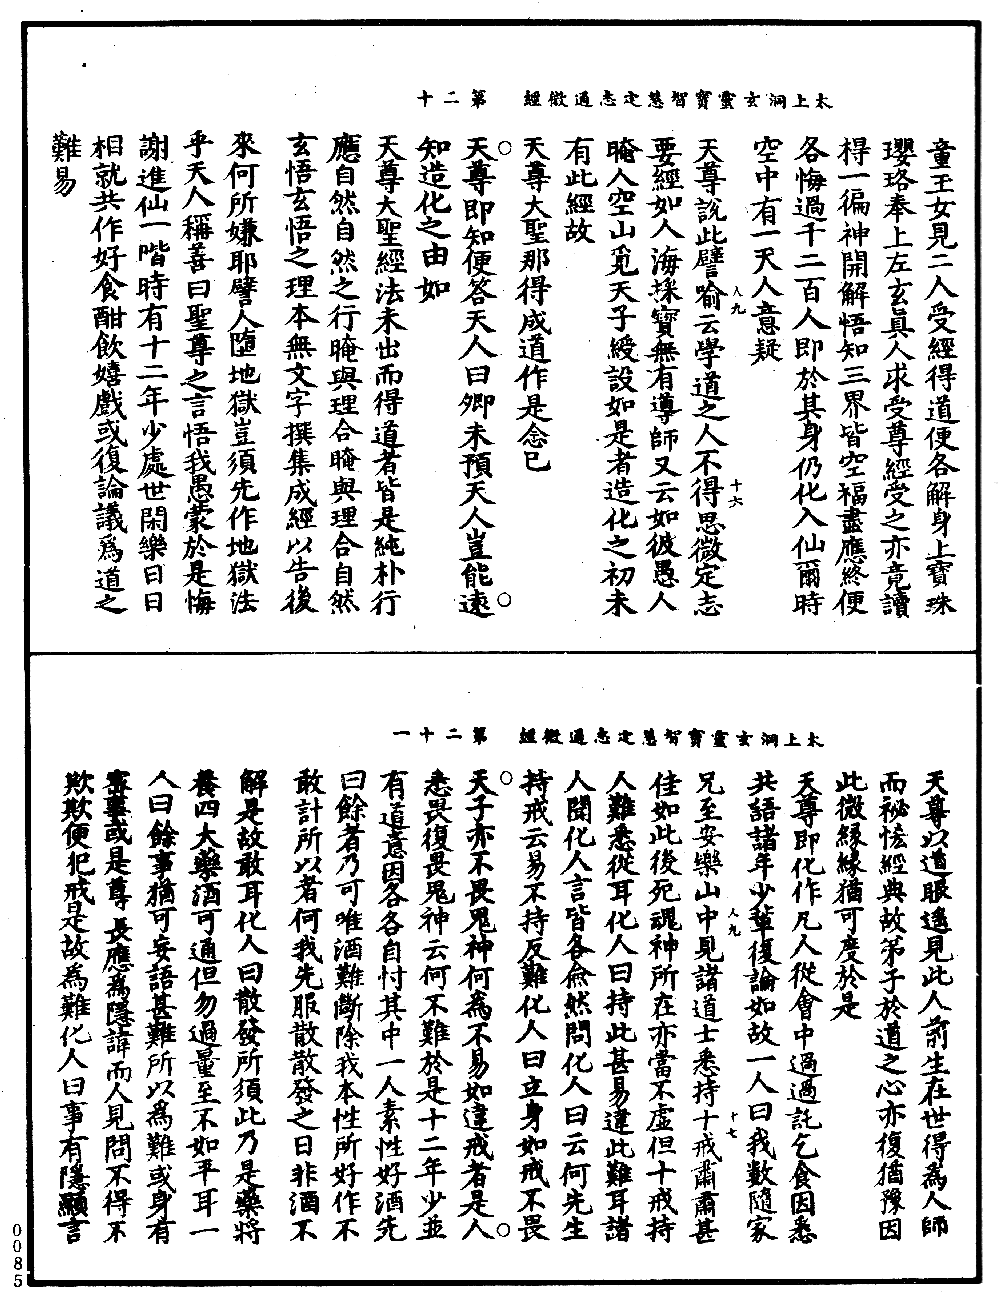 太上洞玄靈寶智慧定志通微經　第二十
童王女見二人受經得道便各解身上寶珠
瓔珞奉上左玄真人求受尊經受之亦竟讀
得一徧神開解悟知三界皆空福盡應終便
各悔過千二百人即於其身仍化入仙爾時
空中有一天人意疑
人九　十六
天尊說此譬喻云學道之人不得思微定志
要經如人海採寶無有導師又云如彼愚人
晻人空山覓天子綬設如是者造化之初未
有此經故
天尊大聖那得成道作是念已
天尊即知便答天人曰卿未預天人豈能遠
知造化之由如
天尊大聖經法未出而得道者皆是純朴行
應自然自然之行晻與理合晻與理合自然
玄悟玄悟之理本無文字撰集成經以告後
來何所嫌耶譬人墮地獄豈須先作地獄法
乎天人稱善曰聖尊之言悟我愚蒙於是悔
謝進仙一階時有十二年少處世閑樂日日
相就共作好食酣飲嬉戲或復論議爲道之
難易
太上洞玄靈寶智慧定志通微經　第二十一
天尊以道眼遙見此人前生在世得為人師
而祕恡經典故弟子於道之心亦復猶豫因
此微緣緣猶可度於是
天尊即化作凡人從會中過過託乞食因悉
共語諸年少輩復論如故一人曰我數隨家
人九　十七
兄至安樂山中見諸道士悉持十戒肅肅甚
佳如此後死魂神所在亦當不虛但十戒持
人難悉從耳化人曰持此甚易違此難耳諸
人聞化人言皆各僉然問化人曰云何先生
持戒云易不持反難化人曰立身如戒不畏
天子亦不畏鬼神何為不易如違戒者是人
悉畏復畏鬼神云何不難於是十二年少並
有道意因各各自忖其中一人素性好酒先
曰餘者乃可唯酒難斷除我本性所好作不
敢計所以者何我先服散散發之日非酒不
解是故敢耳化人曰散發所須此乃是藥將
養四大藥酒可通但勿過量至不如平耳一
人曰餘事猶可妄語甚難所以為難或身有
密事或是尊長應為隱諱而人見問不得不
欺欺便犯戒是故為難化人曰事有隱顯言
0085